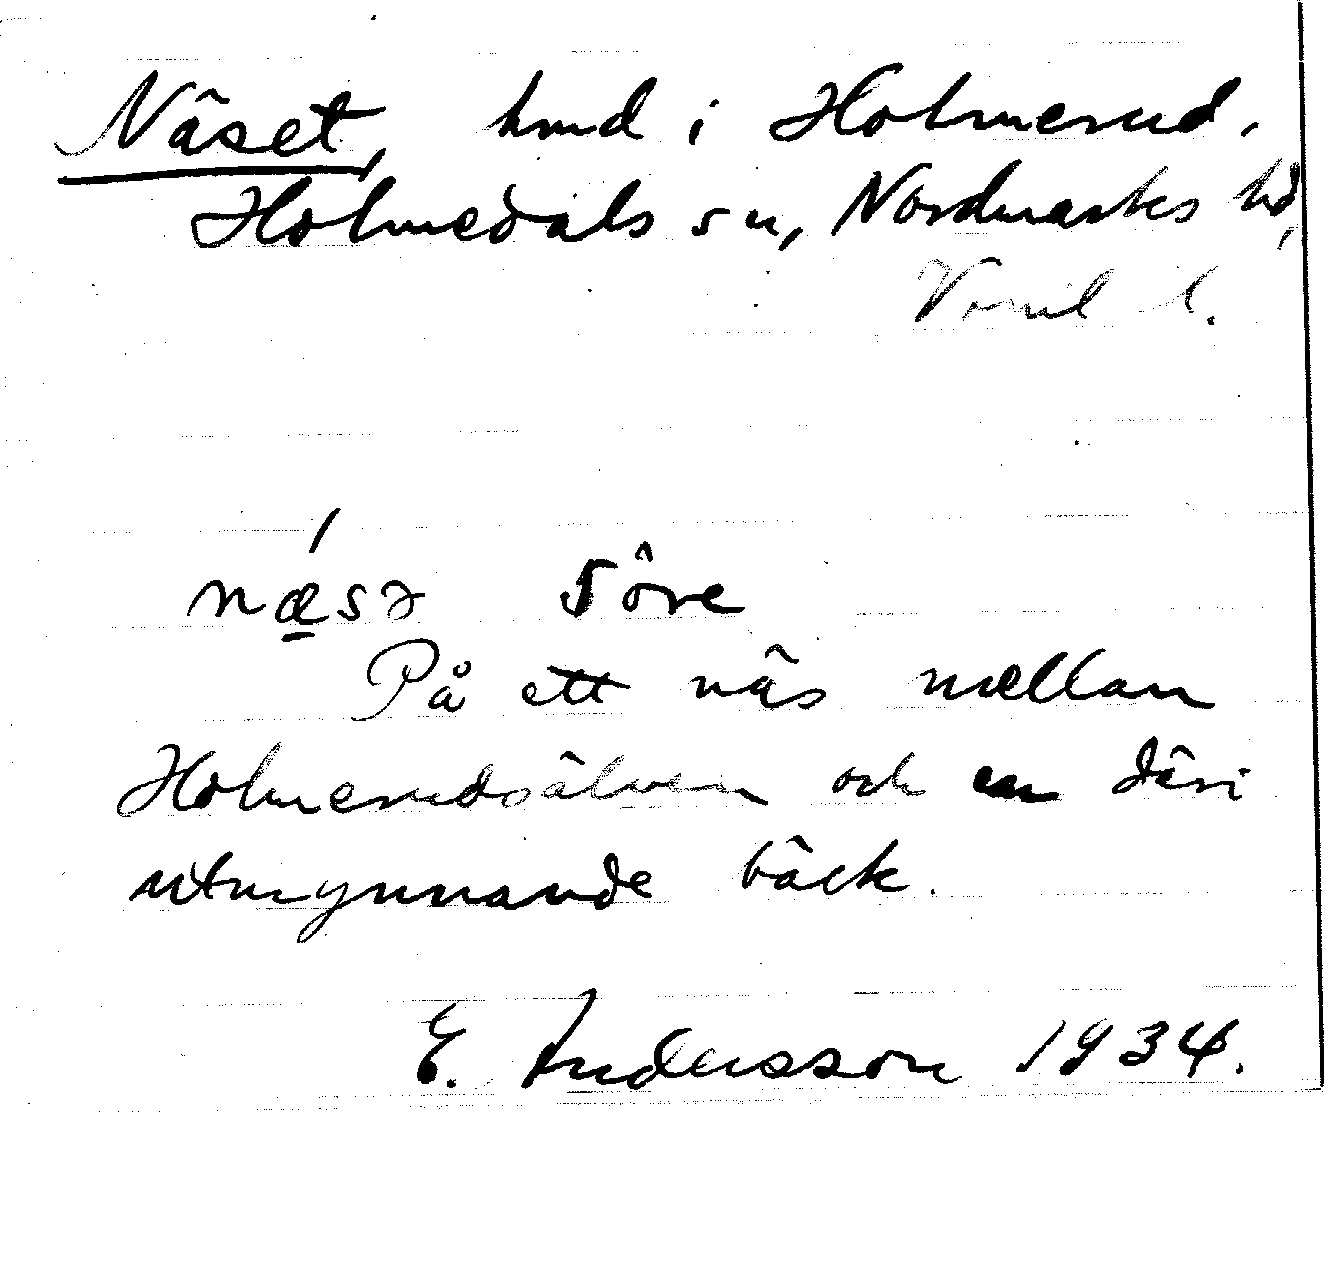 Näset, hmd i Holmerud.
Holmedals sn, Nordmarks hd,
Vrml l.
nǽ̱sə söre
På ett näs mellan
Holmerudsälven och en däri
utmynnande bäck.
E. Andersson 1934.